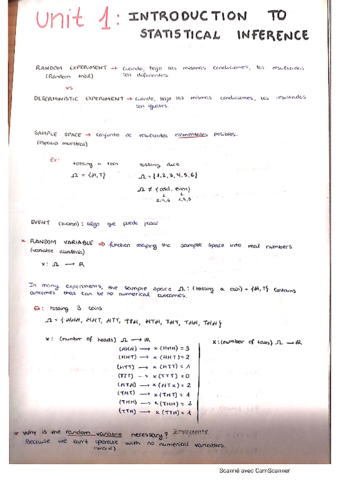 Unit 1: INTRODUCTION TO
STATISTICAL INFERENCE
RANDOM EXPERIMENT → cuando, bajo las mismas condiciones, los resultados
(Random trial) son diferentes.
vs
DETERMINISTIC EXPERIMENT → cuando, bajo las mismas condiciones, los resultados
son iguales.
SAMPLE SPACE → conjunto de resultados elementales posibles.
(espacio muestral)
Ex: tossing a coin tossing dice
Ω = {H,T} Ω = {1,2,3,4,5,6}
Ω ≠ {odd, even}
↓ ↓
EVENT (suceso): algo que puede pasar
* RANDOM VARIABLE → function mapping the sample space into real numbers
(variable aleatoria)
x: Ω → R
In many experiments, the sample space Ω: (tossing a coin) = {H,T} contains
outcomes that can be no numerical outcomes.
Ex: tossing 3 coins
x: (number of heads) Ω → R x: (number of tails) Ω → R
(HHH) → x (HHH) = 3
(HHT) → x (HHT) = 2
(HTT) → x (HTT) = 1
(TTT) → x (TTT) = 0
(HTH) → x (HTH) = 2
(THT) → x (THT) = 1
(THH) → x (THH) = 2
(TTH) → x (TTH) = 1
* Why is the random variable necessary? IMPORTANTE
Because we can't operate with no numerical variables.
Scanné avec CamScanner